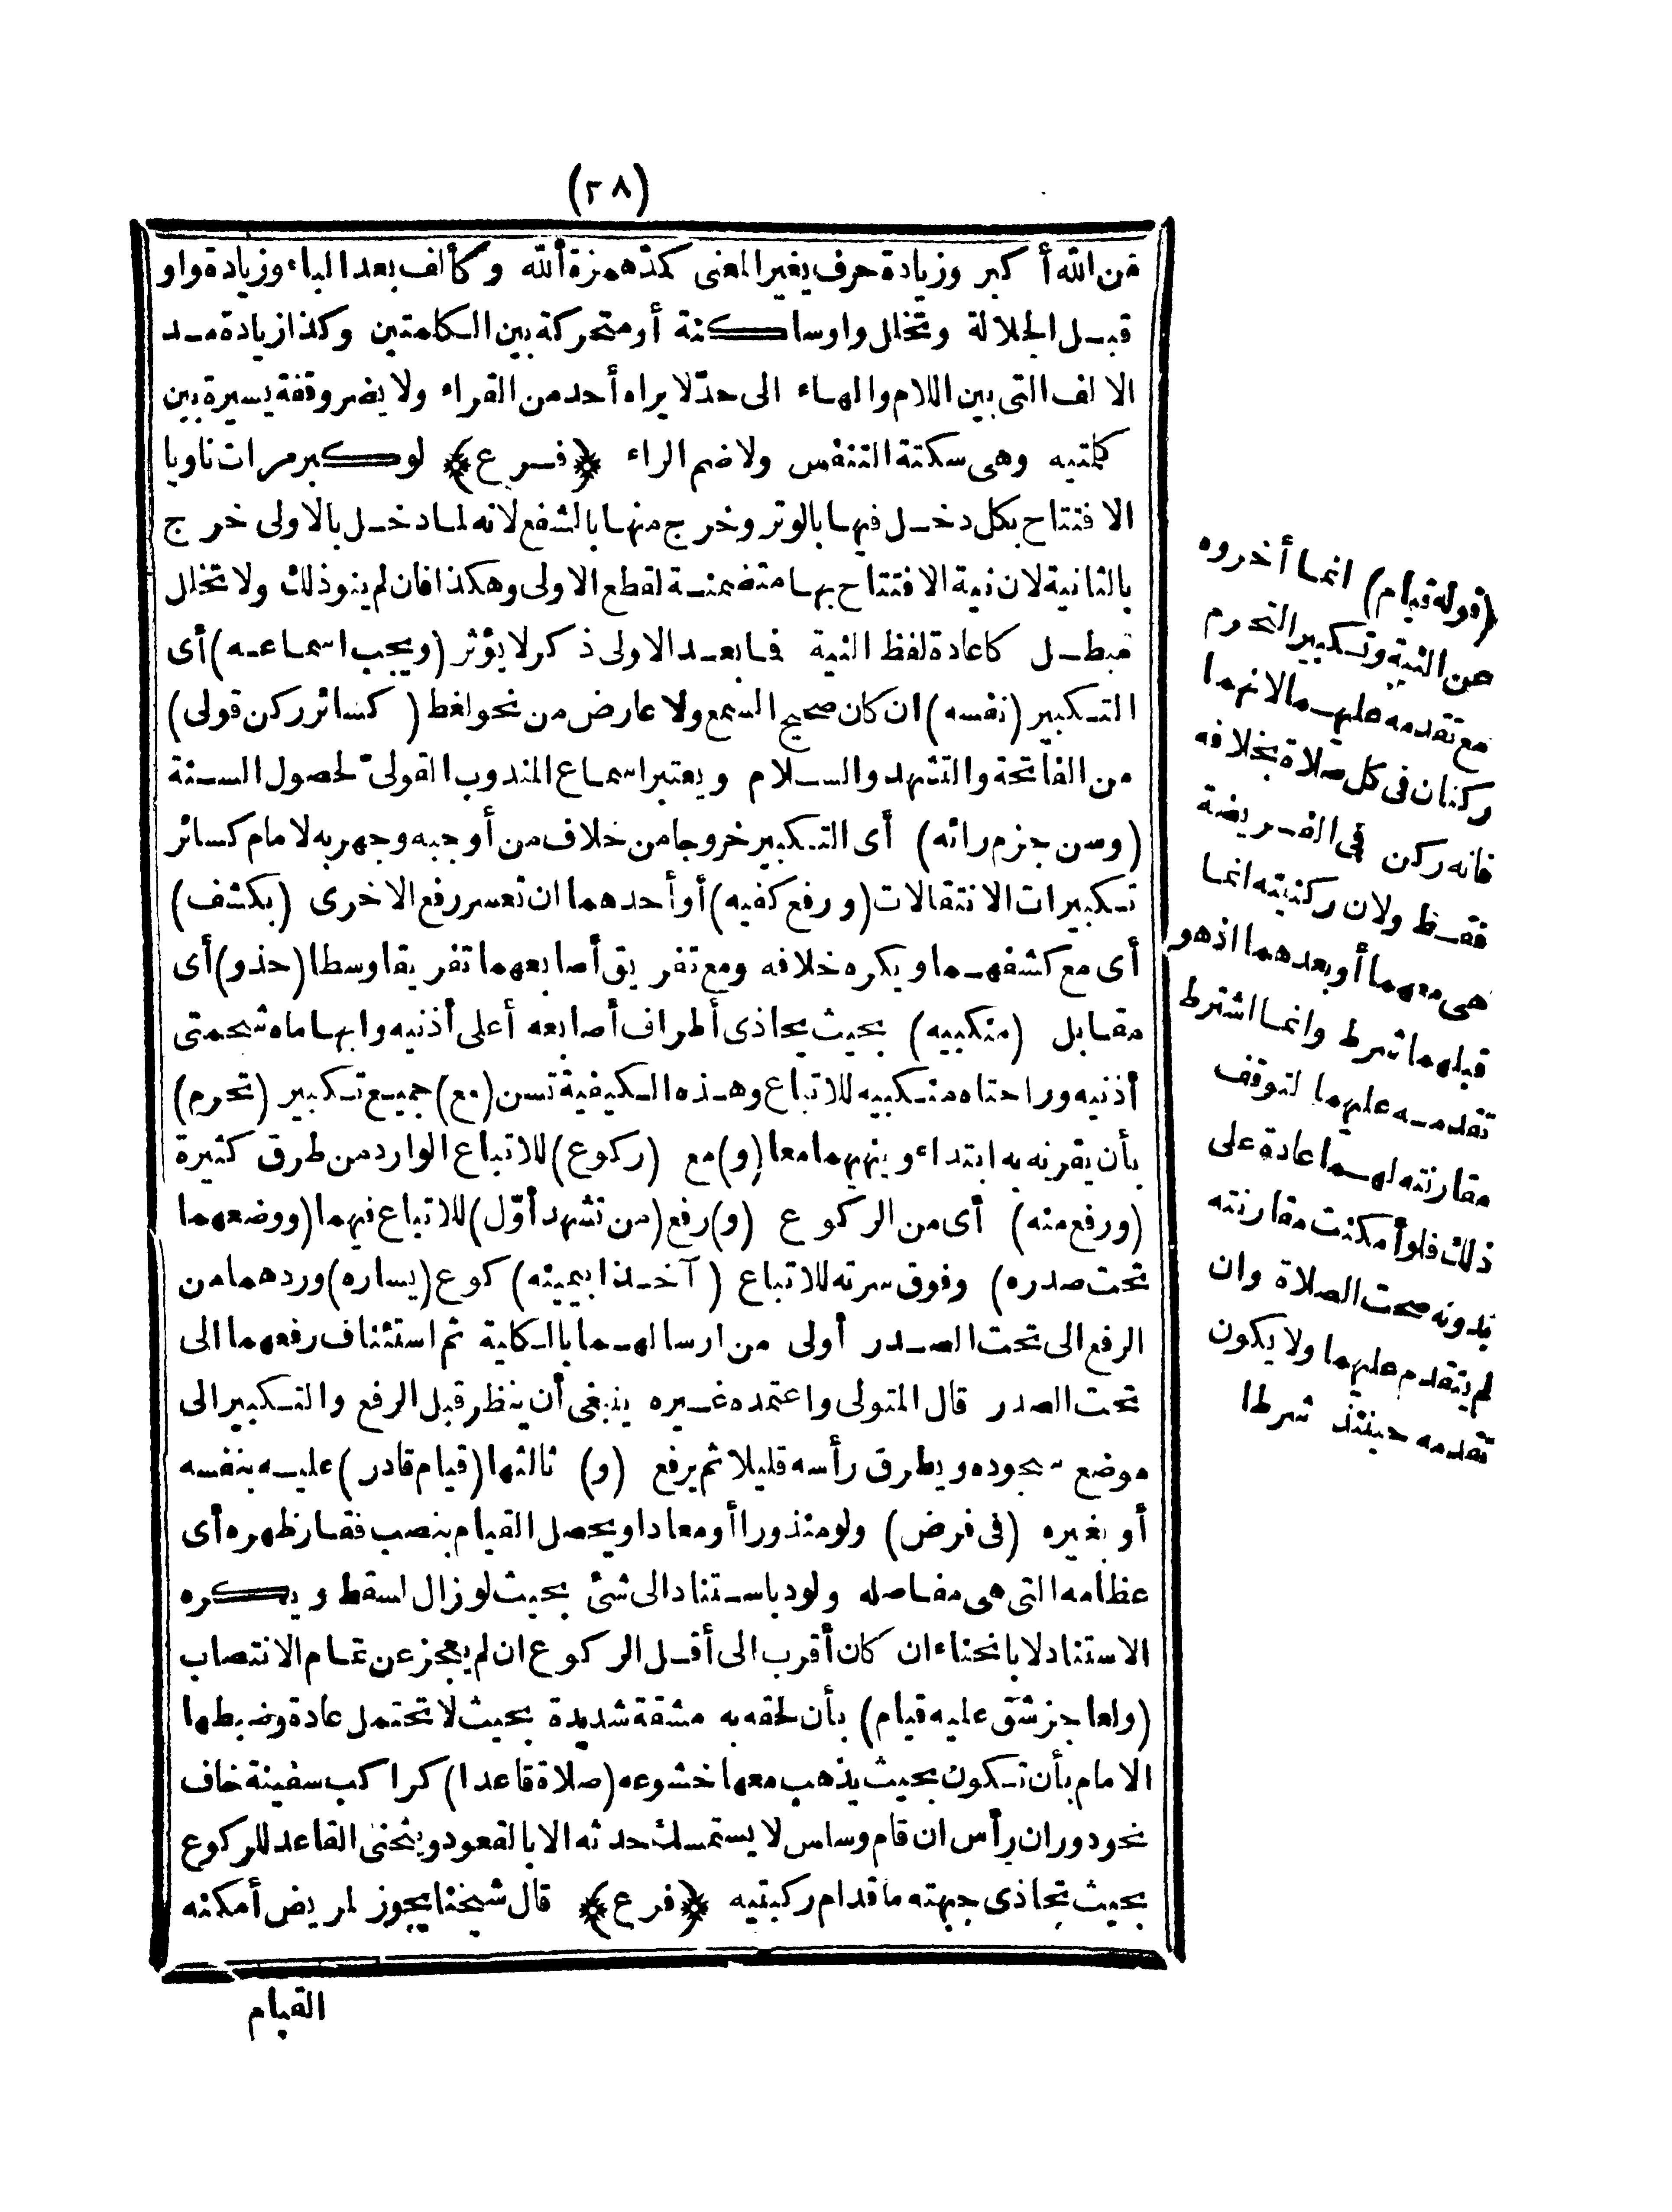 (٢٨)
من الله أكبر وزيادة حرف يغير المعنى كمدّ همزة ألله وكألف بعد الباء وزيادة واو
قبل الجلالة وتخلل واو ساكنة أو متحركة بين الكلمتين وكذا زيادة مد
الالف التى بين اللام والهاء الى حدّ لا يراه أحد من القراء ولا يضر وقفة يسيرة بين
كلمتيه وهى سكتة التنفس ولا ضم الراء ﴿فرع﴾ لو كبر مرات ناويا
الافتتاح بكل دخل فيها بالوتر وخرج منها بالشفع لانه لما دخل بالاولى خرج
بالثانية لان نية الافتتاح بها متضمنة لقطع الاولى وهكذا فان لم ينو ذلك ولا تخلل
مبطل كاعادة لفظ النية فما بعد الاولى ذكر لا يؤثر (ويجب اسماعه) أى
التكبير (نفسه) ان كان صحيح السمع ولا عارض من نحو لغط (كسائر ركن قولى)
من الفاتحة والتشهد والسلام ويعتبر اسماع المندوب القولىّ لحصول السنة
(وسن جزم رائه) أى التكبير خروجا من خلاف من أوجبه وجهر به لامام كسائر
تكبيرات الانتقالات (ورفع كفيه) أو أحدهما ان تعسر رفع الاخرى (بكشف)
أى مع كشفهما ويكره خلافه ومع تفريق أصابعهما تفريقا وسطا (حذو) أى
مقابل (منكبيه) بحيث يحاذى أطراف أصابعه أعلى أذنيه وابهاماه شحمتى
أذنيه وراحتاه منكبيه للاتباع وهذه الكيفية تسن (مع) جميع تكبير (تحرم)
بأن يقرنه به ابتداء وينهيهما معا (و) مع (ركوع) للاتباع الوارد من طرق كثيرة
(ورفع منه) أى من الركوع (و) رفع (من تشهد أوّل) للاتباع فيهما (ووضعهما
تحت صدره) وفوق سرته للاتباع (آخذا بيمينه) كوع (يساره) وردهما من
الرفع الى تحت الصدر أولى من ارسالهما بالكلية ثم استئناف رفعهما الى
تحت الصدر قال المتولى واعتمده غيره ينبغى أن ينظر قبل الرفع والتكبير الى
موضع سجوده ويطرق رأسه قليلا ثم يرفع (و) ثالثها (قيام قادر) عليه بنفسه
أو بغيره (فى فرض) ولو منذورا أو معادا ويحصل القيام بنصب فقار ظهره أى
عظامه التى هى مفاصله ولو باستناد الى شئ بحيث لو زال لسقط ويكره
الاستناد لا بانحناء ان كان أقرب الى أقل الركوع ان لم يعجز عن تمام الانتصاب
(ولعاجز شق عليه قيام) بأن لحقه به مشقة شديدة بحيث لا تحتمل عادة وضبطها
الامام بأن تكون بحيث يذهب معها خشوعه (صلاة قاعدا) كراكب سفينة خاف
نحو دوران رأس ان قام وسلس لا يستمسك حدثه الا بالقعود وينحنى القاعد للركوع
بحيث تحاذى جبهته ما قدام ركبتيه ﴿فرع﴾ قال شيخنا يجوز لمريض أمكنه
القيام
(قوله قيام) انما أخروه
عن النية وتكبير التحرم
مع تقدمه عليهما لانهما
ركنان فى كل صلاة بخلافه
فانه ركن فى الفريضة
فقط ولان ركنيته انما
هى معهما أو بعدهما اذ هو
قبلهما شرط وانما اشترط
تقدمه عليهما لتوقف
مقارنته لهما عادة على
ذلك فلو أمكنت مقارنته
بدونه صحت الصلاة وان
لم يتقدم عليهما ولا يكون
تقدمه حينئذ شرطا